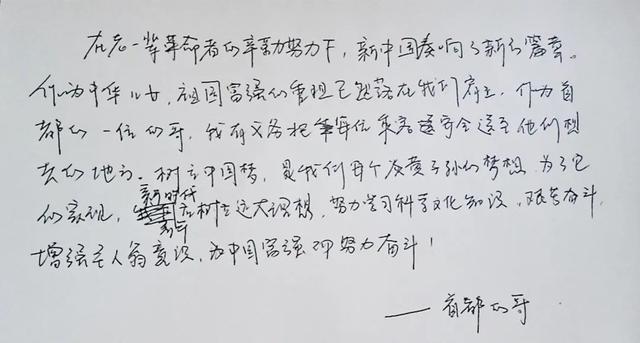 在老一辈革命者的辛勤努力下，新中国奏响了新的篇章。
作为中华儿女，祖国富强的重担已然落在我们肩上。作为首
都的一位的哥，我有义务把每位乘客安全送至他们想
去的地方。树立中国梦，是我们每个炎黄子孙的梦想。为了它
的实现，新时代青年应树立远大理想，努力学习科学文化知识，艰苦奋斗，
增强主人翁意识，为中国富强而努力奋斗！
——首都的哥